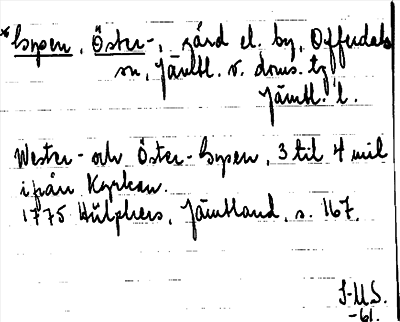 *Bysen, Öster-, gård el. by, Offerdals
sn, Jämtl. v. doms. tg,
Jämtl. l.
Wester- och Öster-Bysen, 3 til 4 mil
ifrån Kyrkan.
1775 Hülphers, Jämtland, s. 167.
S-U.S.
-61.